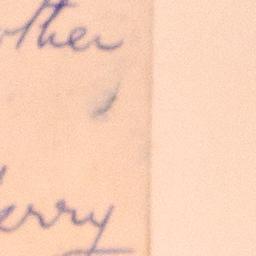 other
erry